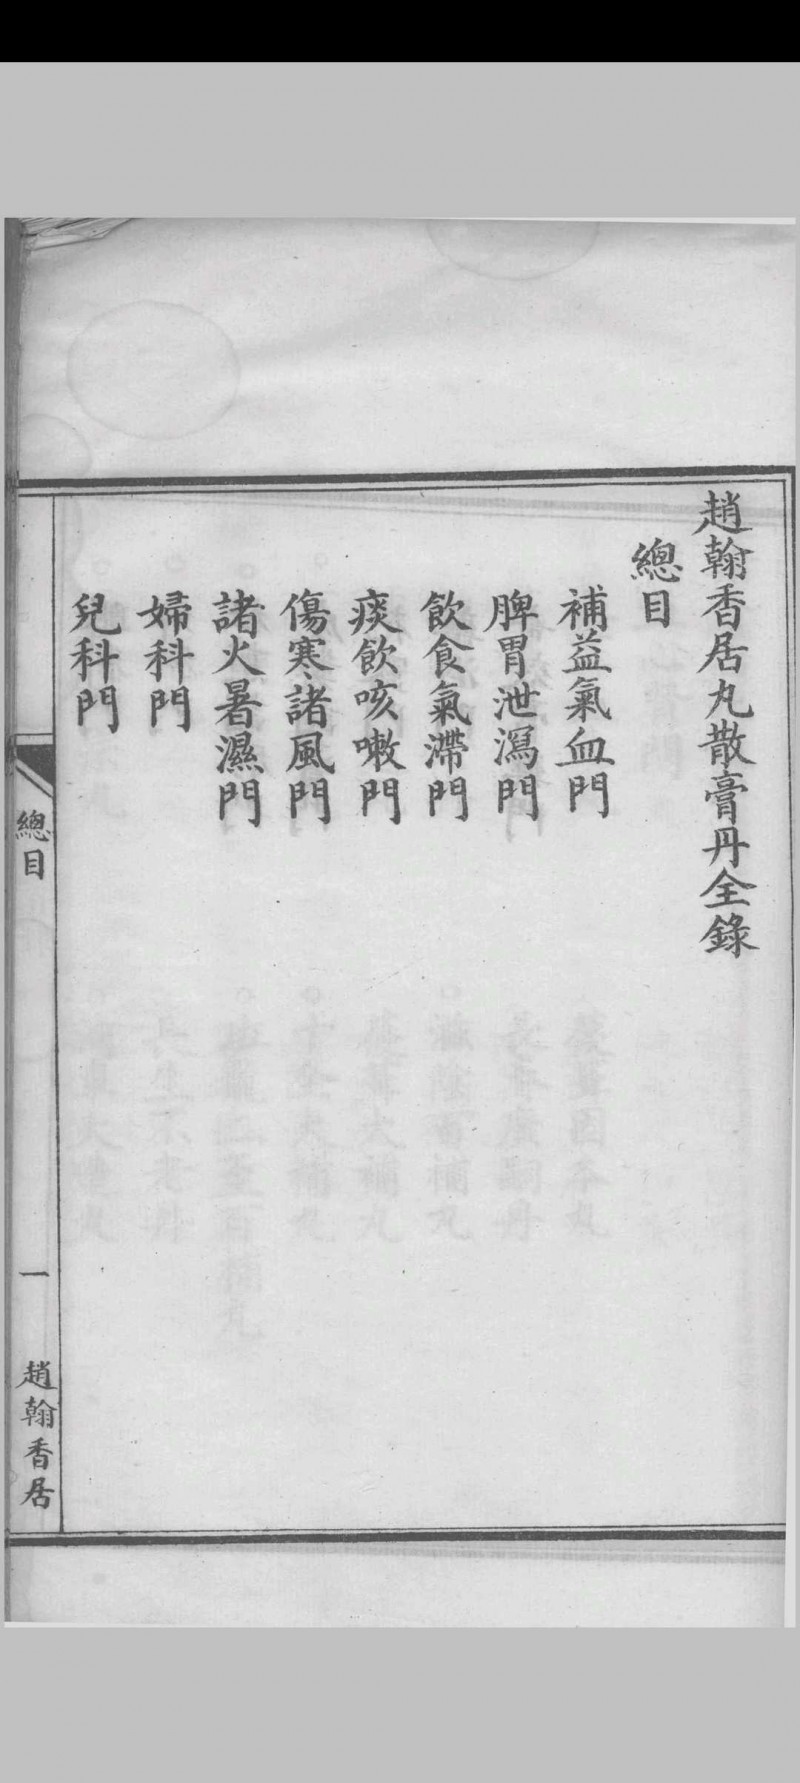 趙翰香居丸散膏丹全錄
總目
補益氣血門
脾胃泄瀉門
飲食氣滯門
痰飲咳嗽門
傷寒諸風門
諸火暑濕門
婦科門
兒科門
總目
一
趙翰香居